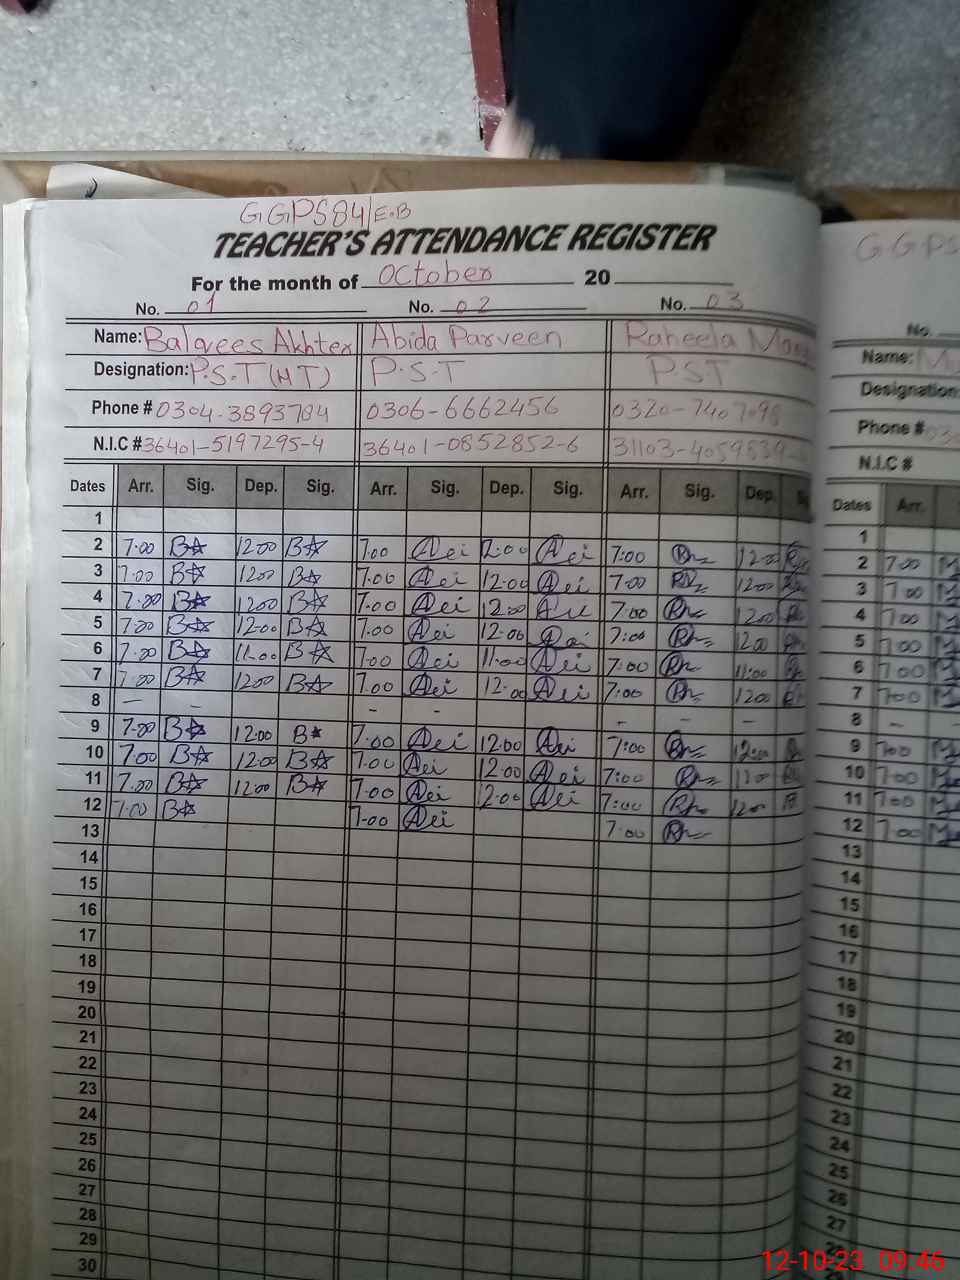 GGPS84/E.B
TEACHER'S ATTENDANCE REGISTER
For the month of October 20
No. 01 No. 02 No. 03
Name: Balqees Akhter Abida Parveen Raheela
Designation: P.S.T (HT) P.S.T PST
Phone # 0304-3893784 0306-6662456 0320-7407098
N.I.C # 36401-5197295-4 36401-0852852-6 31103-4059839
Dates Arr. Sig. Dep. Sig. Arr. Sig. Dep. Sig. Arr. Sig. Dep.
1
2 7.00 12.00 7.00 12.00 7:00 12.00
3 7.00 1200 7.00 12.00 7:00 1200
4 7.00 1200 7.00 12.00 7:00 1200
5 7.00 12.00 7.00 12.00 7:00 1200
6 7.00 11.00 7.00 11.00 7:00 11:00
7 7.00 1200 7.00 12.00 7:00 1200
8 — - - - - - -
9 7.00 12.00 7.00 12.00 7:00 12:00
10 7.00 12.00 7.00 12.00 7:00 1100
11 7.00 1200 7.00 12.00 7:00 1200
12 7.00 7.00 7:00
13
14
15
16
17
18
19
20
21
22
23
24
25
26
27
28
29
30
GGPS
No.
Name:
Designation
Phone #
N.I.C #
Dates Arr.
1
2 700
3 700
4 700
5 700
6 700
7 700
8 - -
9 700
10 7.00
11 700
12 7.00
13
14
15
16
17
18
19
20
21
22
23
24
25
26
27
12-10-23 09:46